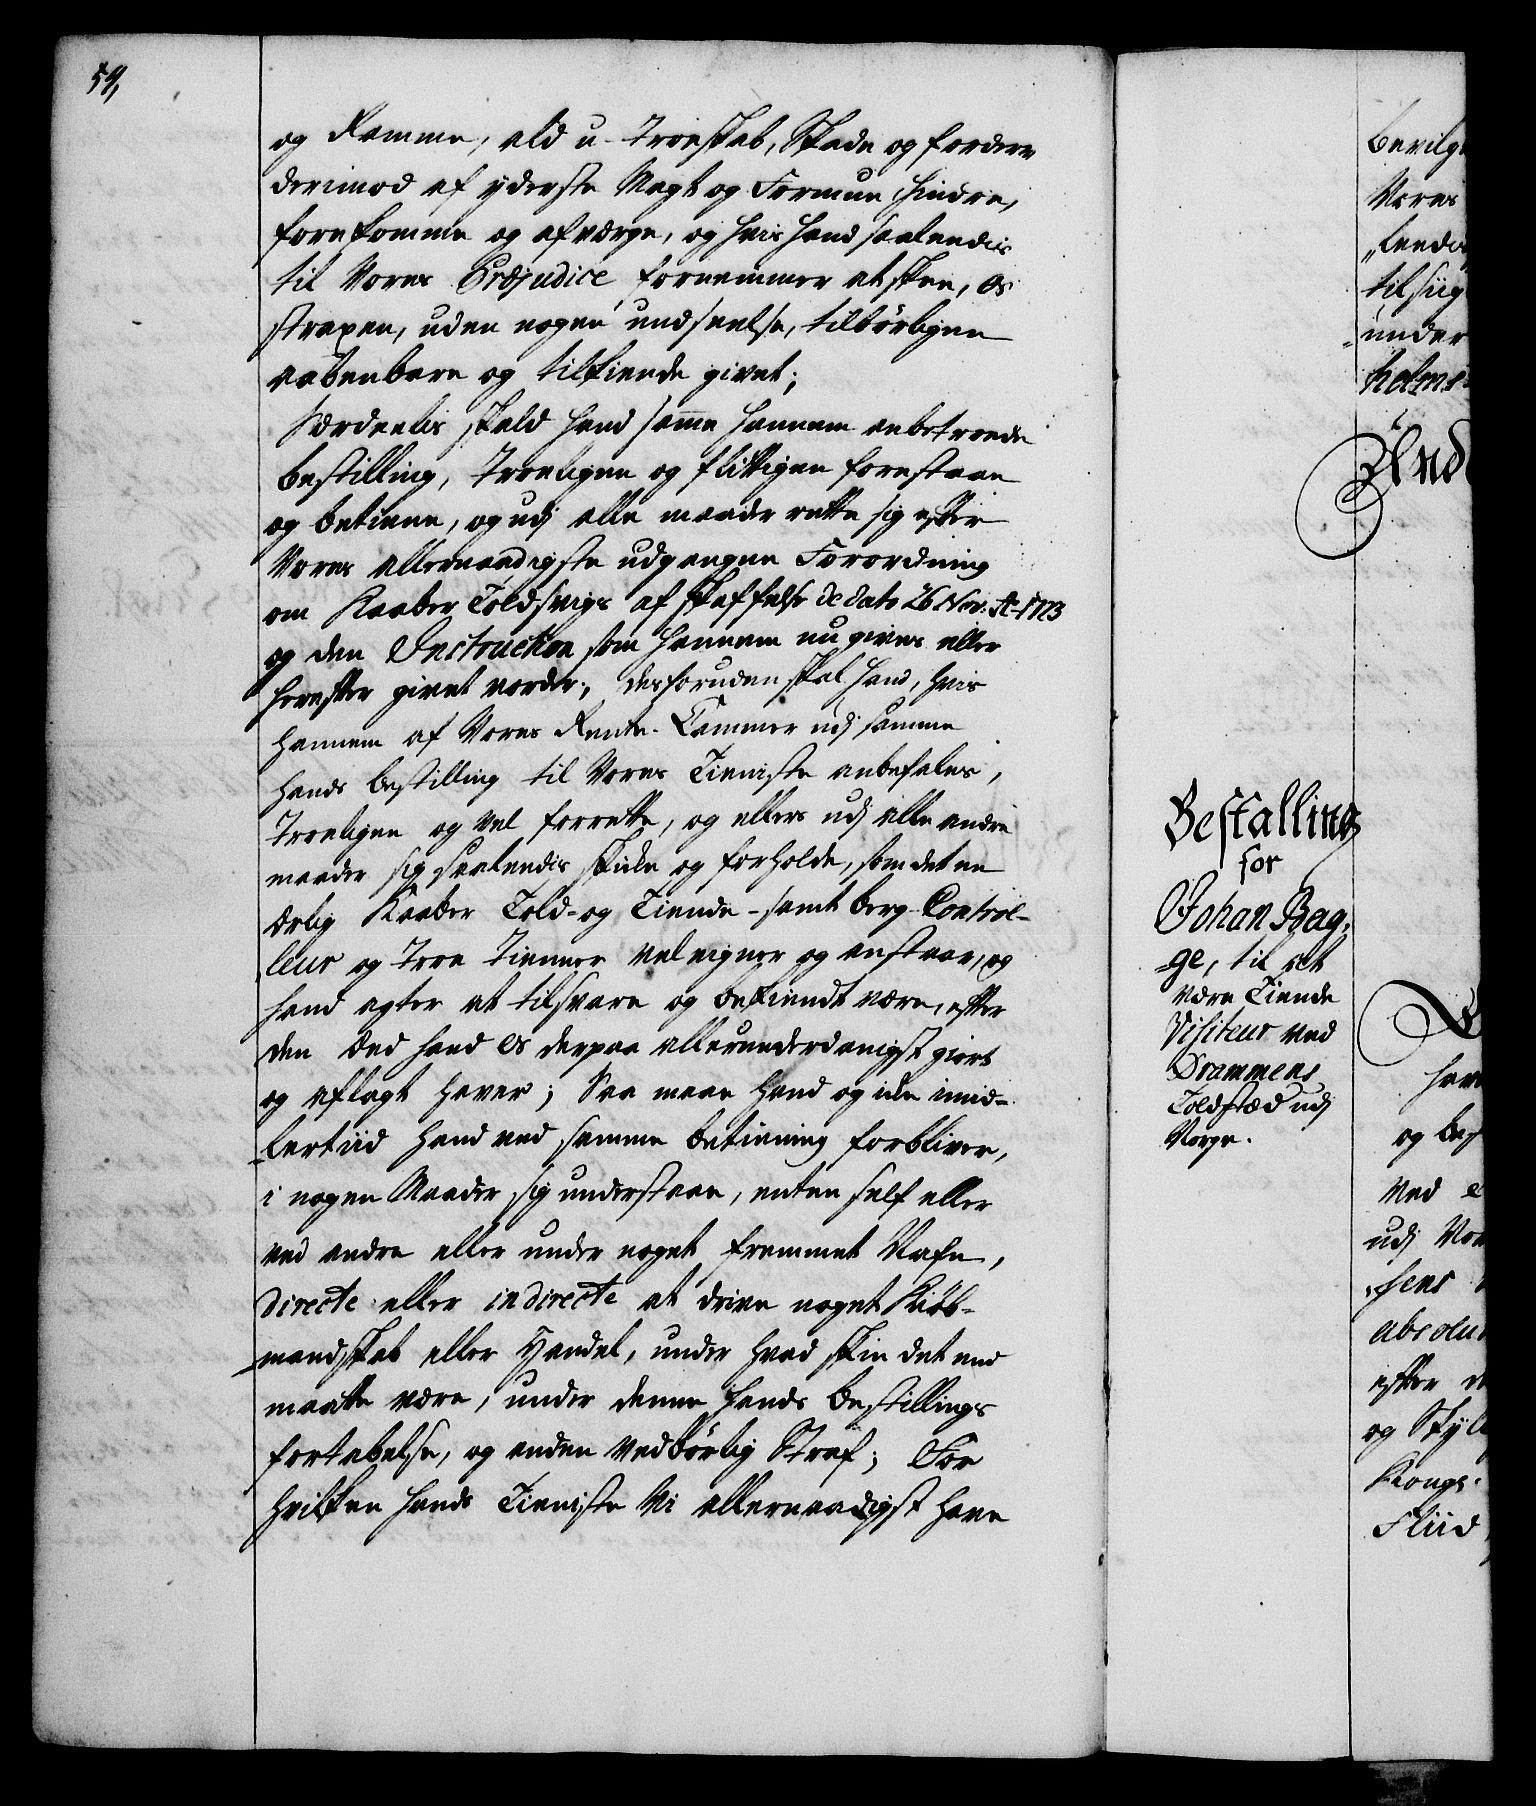 59,
og Ramme, ald u-Troeskab, Skade og forderv
derimod af yderste Magt og Formue hindre,
forekomme og afværge, og hvis hand saaledis
til Vores Præjudice fornemmer at skee, Os
straxen, uden nogen undseelse, tilbörligen
aabenbare og tilkiende givet;
Særdeelis skald hand samme hannem anbetroede
bestilling, Troeligen og flittigen forestaae
og betiene, og udj alle maader rette sig efter
Vores allernaadigste udgangne Forordning
om Kaaber Toldsvigs afskaffelse de dato 26 Nov. A. 1773
og den Instruction som hannem nu gives eller
herefter givet vorder; desforuden skal hand, hvis
hannem af Vores Rente-Cammer udj samme
hands bestilling til Vores Tieniste anbefales,
Troeligen og vel forrette, og ellers udj alle andre
maader sig saaledis skicke og forholde, som det en
ærlig Kaaber Told- og Tiende- samt berg-Control-
leur og Troe Tienner vel eigner og anstaar, og
hand agter at tilsvare og bekiendt være, efter
den Eed hand Os derpaa allerunderdanigst giort
og aflagt haver; Saa maae hand og icke imid-
lertiid hand ved samme betiening forbliver,
i nogen Maader sig understaae, enten self eller
ved andre eller under noget fremmet Nafn,
directe eller indirecte at drive noget Kiöb-
mandskab eller Handel, under hvad skin det end
maatte være, under denne hands bestillings
fortabelse, og anden vedbörlig Straf; For
hvilken hands Tieniste Vi allernaadigst have
Bestalling
for
Johan Bag-
ge, til at
være Tiende
Visiteur ved
Drammens
Toldstæd udj
Norge.
bevilg
Vores
tilsiig
under
holms
And
have
og
Ved
udj
absolu
efter
og Skyl
Kongs
Fliid